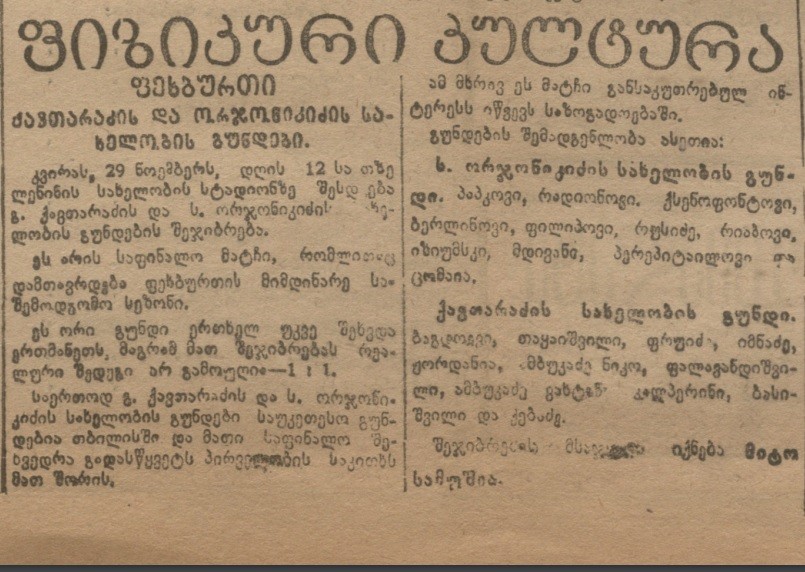 ფიზიკური კულტურა
ფეხბურთი
ქავთარაძის და ორჯონიკიძის სა-
ხელობის გუნდები.
კვირას, 29 ნოემბერს, დღის 12 სა თზე
ლენინის სახელობის სტადიონზე შესდ ება
გ. ქავთარაძის და ს. ორჯონიკიძის
ლობის გუნდების შეჯიბრება.
ეს არის საფინალო მატჩი, რომლითაც
დამთავრდება ფეხბურთის მიმდინარე სა-
შემოდგომო სეზონი.
ეს ორი გუნდი ერთხელ უკვე შეხვდა
ერთმანეთს, მაგრამ მათ შეჯიბრებას რეა-
ლური შედეგი არ გამოუღია—1 : 1.
საერთოდ გ. ქავთარაძის და ს. ორჯონი-
კიძის სახელობის გუნდები საუკეთესო გუნ-
დებია თბილისში და მათი საფინალო შე-
ხვედრა გადასწყვეტს პირველობის საკითხს
მათ შორის.
ამ მხრივ ეს მატჩი განსაკუთრებულ ინ-
ტერესს იწვევს საზოგადოებაში.
გუნდების შემადგენლობა ასეთია:
ს. ორჯონიკიძის სახელობის გუნ-
დი. პაპკოვი, რადიონოვი. ქსენოფონტოვი,
ბერლინოვი, ფილიპოვი, რუსიძე, რიაბოვი,
იზიუმსკი, მდივანი, პერეპიტაილოვი და
ცომაია.
ქავთარაძის სახელობის გუნდი.
თაყაიშვილი, იმნაძე,
ჟორდანია, ნიკო, ფალავანდიშვი-
ლი, ამბუკაძე ვახტანგ ბასი-
შვილი და ქებაძე.
იქნება მიტო